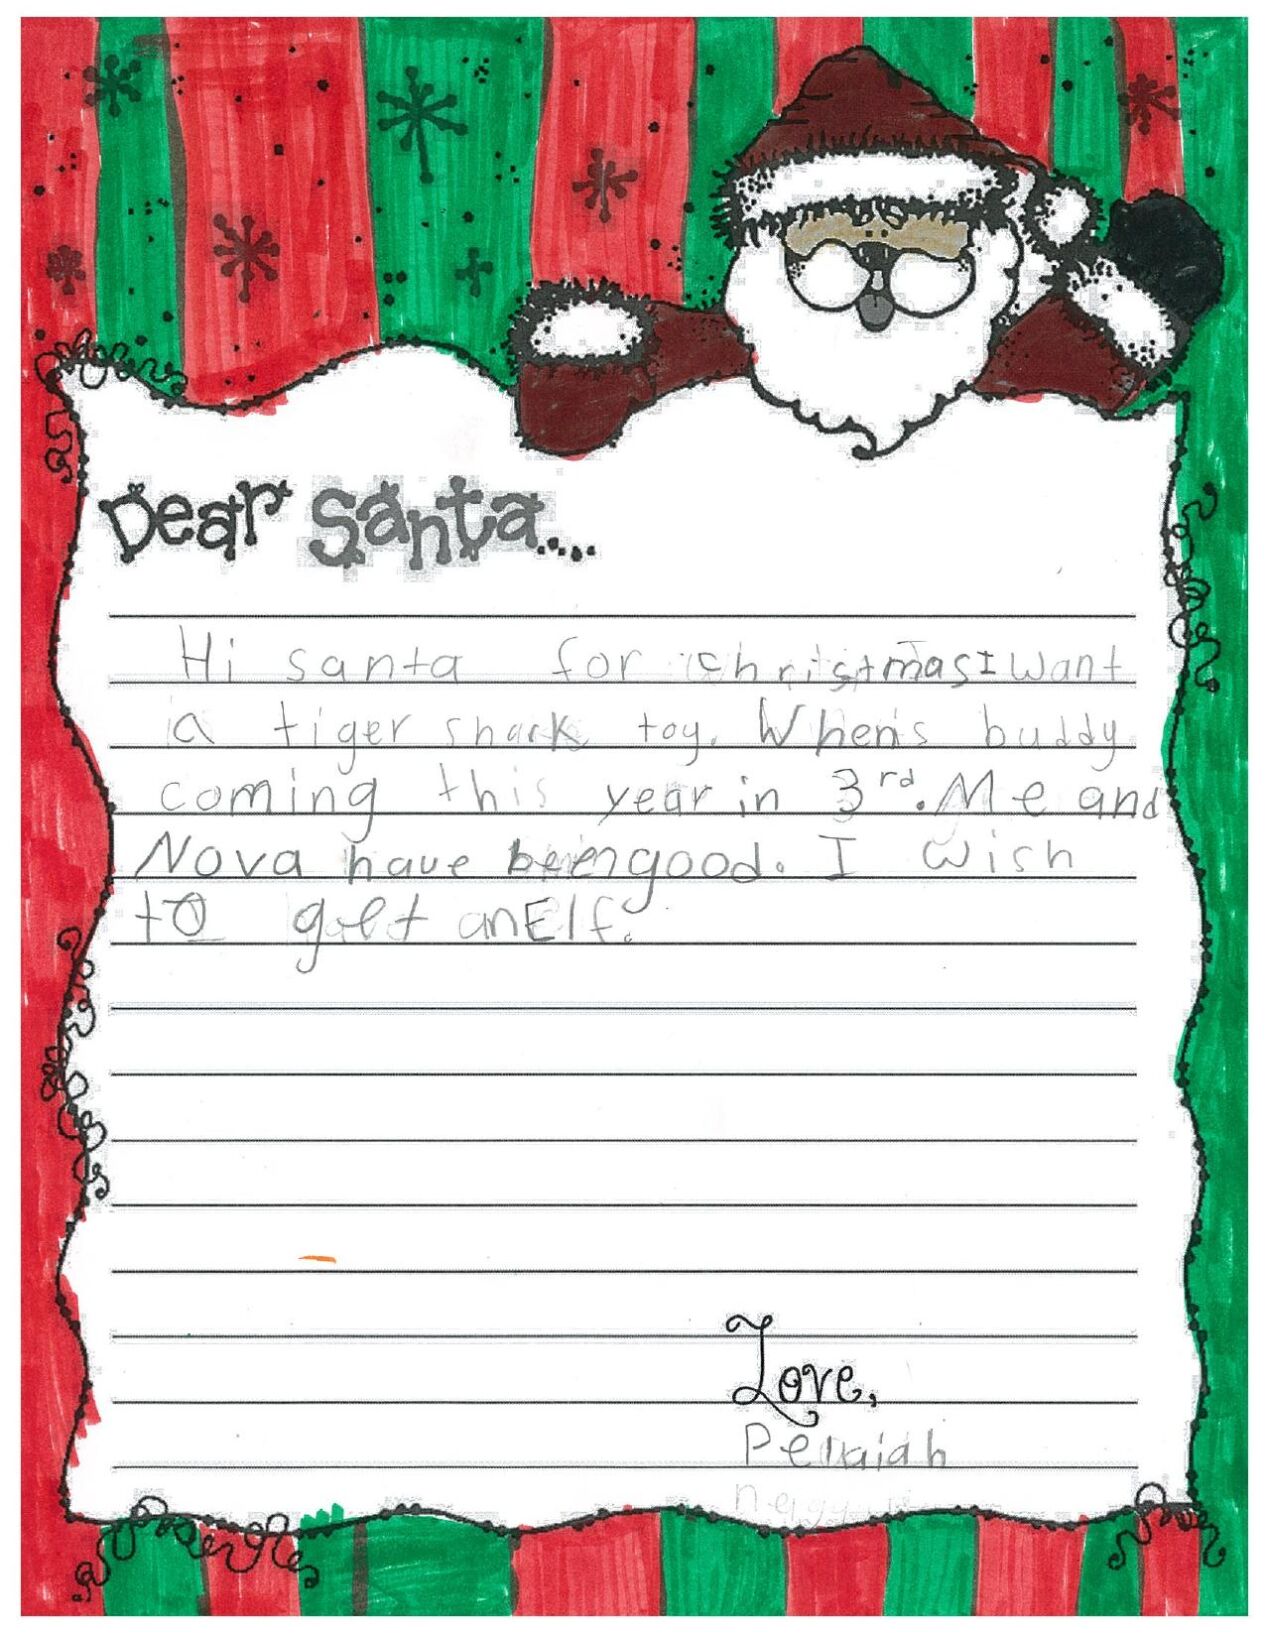 Dear Santa...
Hi santa for christmas I want
a tiger shark toy. When's buddy
coming this year in 3rd. Me and
Nova have been good. I wish
to get an Elf.
Love,